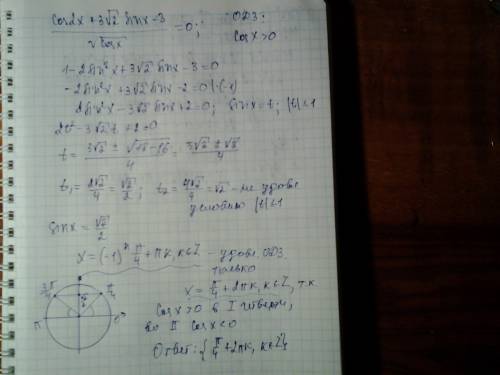 cos2x + 3√2 sinx - 3 / √cosx = 0; ОДЗ:
cosx > 0
1 - 2sin²x + 3√2 sinx - 3 = 0
-2sin²x + 3√2 sinx - 2 = 0 | ·(-1)
2sin²x - 3√2 sinx + 2 = 0; sinx = t; |t| ≤ 1
2t² - 3√2 t + 2 = 0
t = 3√2 ± √18-16 / 4 = 3√2 ± √2 / 4
t₁ = 2√2 / 4 = √2 / 2; t₂ = 4√2 / 4 = √2 - не удовл
условию |t| ≤ 1
sinx = √2 / 2
x = (-1)ᵏ π/4 + πk, k∈Z - удовл. ОДЗ
только
x = π/4 + 2πk, k∈Z, т.к.
cosx > 0 в I четверти,
во II cosx < 0
Ответ: {π/4 + 2πk, k∈Z}
3π/4 π/4
π 0